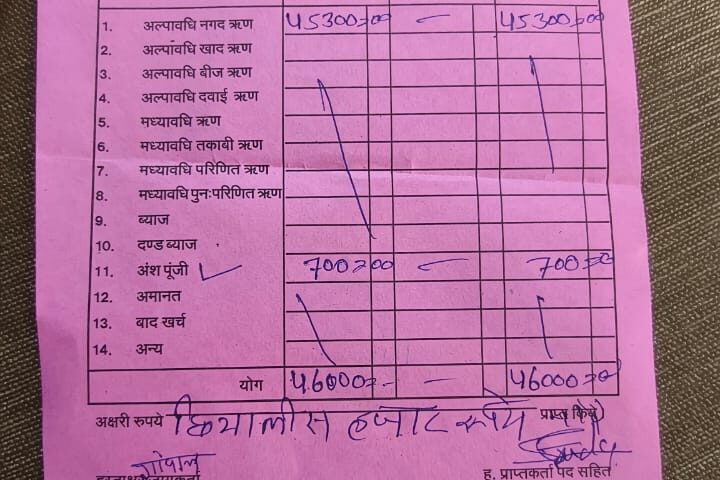 1. अल्पावधि नगद ऋण 45300=00 — 45300=00
2. अल्पावधि खाद ऋण
3. अल्पावधि बीज ऋण
4. अल्पावधि दवाई ऋण
5. मध्यावधि ऋण
6. मध्यावधि तकाबी ऋण
7. मध्यावधि परिणित ऋण
8. मध्यावधि पुनःपरिणित ऋण
9. ब्याज
10. दण्ड ब्याज
11. अंश पूंजी ✓ 700=00 — 700=00
12. अमानत
13. बाद खर्च
14. अन्य
योग 46000=- — 46000=00
अक्षरी रुपये छियालीस हजार रूपये प्राप्त किये
गोपाल
ह. प्राप्तकर्ता पद सहित